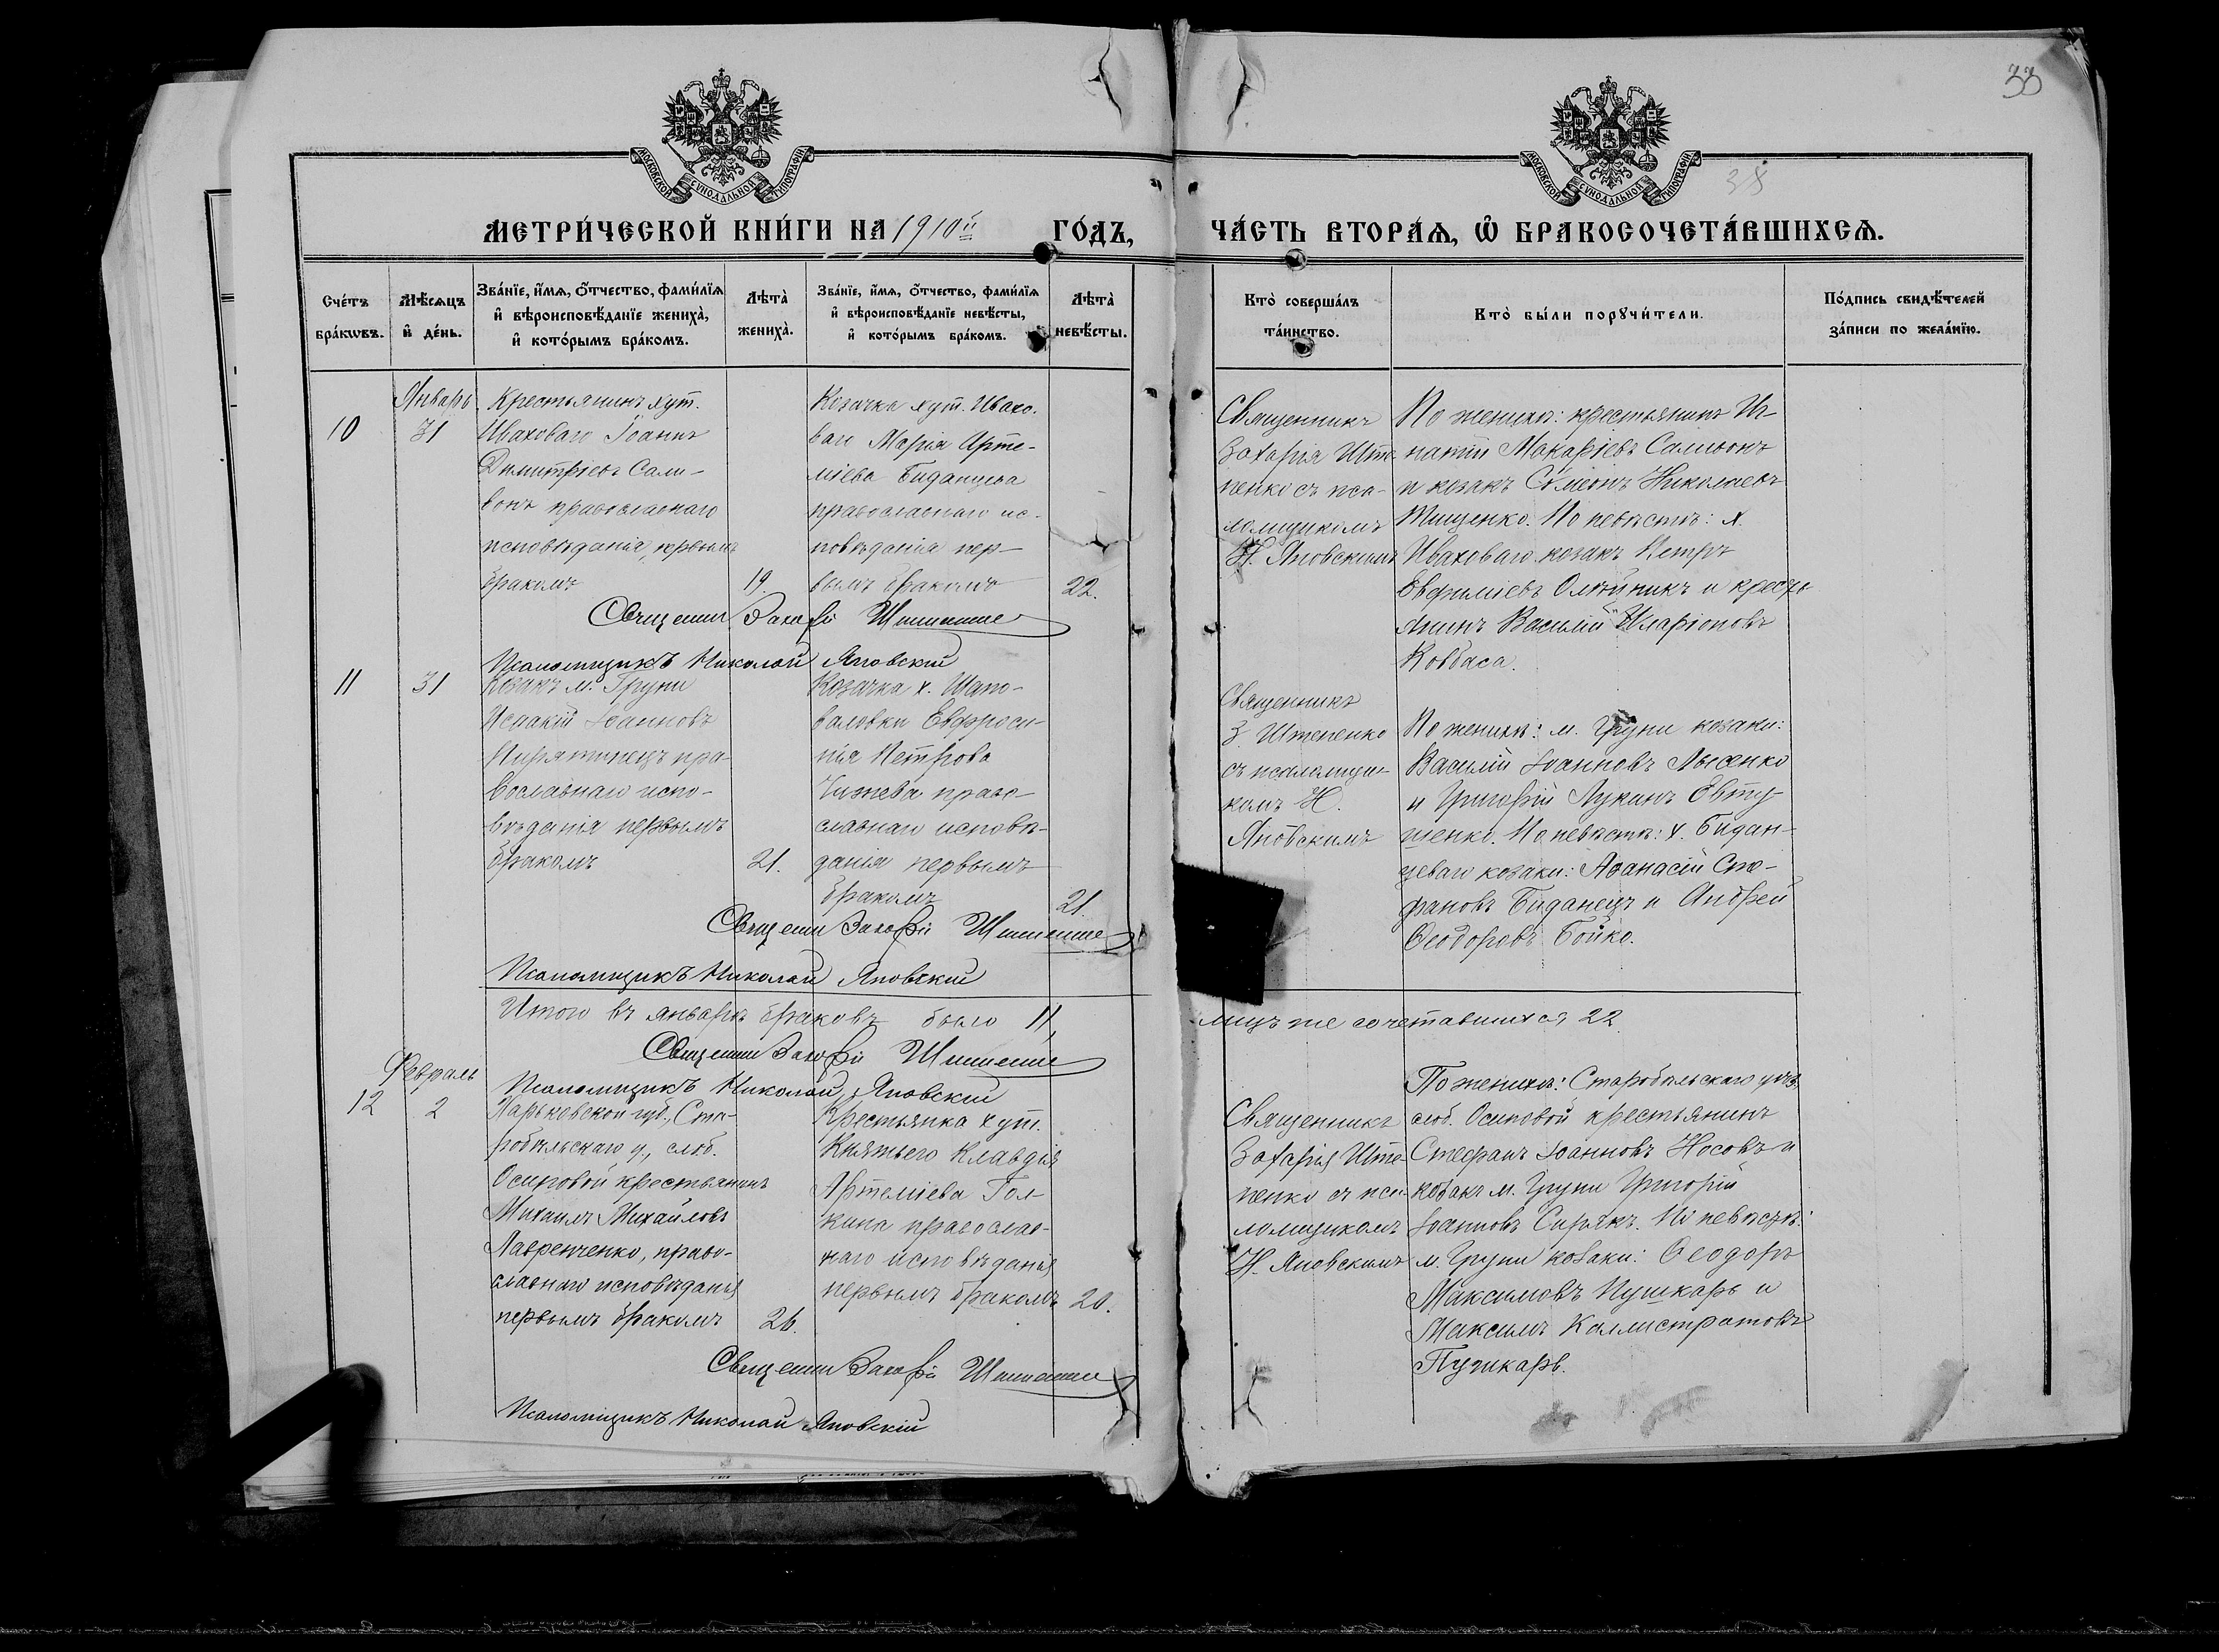 33
38
МОСКОВСКОЙ СУНОДАЛЬНОЙ ТИПОГРАФІИ
МОСКОВСКОЙ СУНОДАЛЬНОЙ ТИПОГРАФІИ
МЕТРИ́ЧЕСКОЙ КНИ́ГИ НА 1910й ГО́ДЪ,
ЧА́СТЬ ВТОРА́Ѧ, Ѽ БРАКОСОЧЕТА́ВШИХСѦ.
Сче́тъ
бра́кѡвъ.
Мѣ́сѧцъ
и҆ де́нь.
Зва́нїе, и҆́мѧ, о҆́тчество, фами́лїѧ
и҆ вѣроисповѣ́данїе жениха̀,
и҆ кото́рымъ бра́комъ.
Лѣта̀
жениха̀.
Зва́нїе, и҆́мѧ, о҆́тчество, фами́лїѧ
и҆ вѣроисповѣ́данїе невѣ́сты,
и҆ кото́рымъ бра́комъ.
Лѣта̀
невѣ́сты.
Кто̀ соверша́лъ
та́инство.
Кто̀ бы́ли порꙋчи́тели.
По́дпись свидѣ́телей
за́писи по жела́нїю.
10
Январь
31
Крестьянинъ хут.
Иваховаго Іоаннъ
Димитріевъ Сали-
вонъ православнаго
исповѣданія, первымъ
бракомъ
19.
Козачка хут. Ивахо-
ваго Марія Арте-
міева Биданцева
православнаго ис-
повѣданія пер-
вымъ бракомъ
22.
Священникъ
Захарія Ште-
пенко съ пса-
ломщикомъ
Н. Яновскимъ
По женихѣ: крестьянинъ Иг-
натій Макаріевъ Саливонъ
и козакъ Сѵмеонъ Николаевъ
Тищенко. По невѣстѣ: х.
Иваховаго козакъ Петръ
Евфиміевъ Олейникъ и кресть-
янинъ Василій Иларіоновъ
Ковбаса.
Священникъ Захарій Штепенко
Псаломщикъ Николай Яновскій
11
31
Козакъ м. Груни
Исаакій Іоанновъ
Пирятинецъ пра-
вославнаго испо-
вѣданія первымъ
бракомъ
21.
Козачка х. Шапо-
валовки Евфроси-
нія Петрова
Чижева право-
славнаго исповѣ-
данія первымъ
бракомъ
21.
Священникъ
З. Штепенко
съ псаломщи-
комъ Н.
Яновскимъ
По женихѣ: м. Груни козаки:
Василій Іоанновъ Лысенко
и Григорій Лукинъ Евту-
шенко. По невѣстѣ: х. Бидан-
цеваго козаки: Аѳанасій Сте-
фановъ Биданецъ и Андрей
Ѳеодоровъ Бойко.
Священникъ Захарій Штепенко
Псаломщикъ Николай Яновскій
Итого въ январѣ браковъ было 11,
лицъ же сочетавшихся 22.
Священникъ Захарій Штепенко
Псаломщикъ Николай Яновскій
12
Февраль
2
Харьковской губ., Ста-
робѣльскаго у., слоб.
Осиповой крестьянинъ
Михаилъ Михайловъ
Лавренченко, право-
славнаго исповѣданія
первымъ бракомъ
26.
Крестьянка хут.
Княжьего Клавдія
Артеміева Гол-
кина православ-
наго исповѣданія
первымъ бракомъ
20.
Священникъ
Захарія Ште-
пенко съ пса-
ломщикомъ
Н. Яновскимъ
По женихѣ: Старобѣльскаго уѣз.
слоб. Осиповой крестьянинъ
Стефанъ Іоанновъ Носовъ и
козакъ м. Груни Григорій
Іоанновъ Сирякъ. По невѣстѣ:
м. Груни козаки: Ѳеодоръ
Максимовъ Пушкарь и
Максимъ Каллистратовъ
Пушкарь.
Священникъ Захарій Штепенко
Псаломщикъ Николай Яновскій